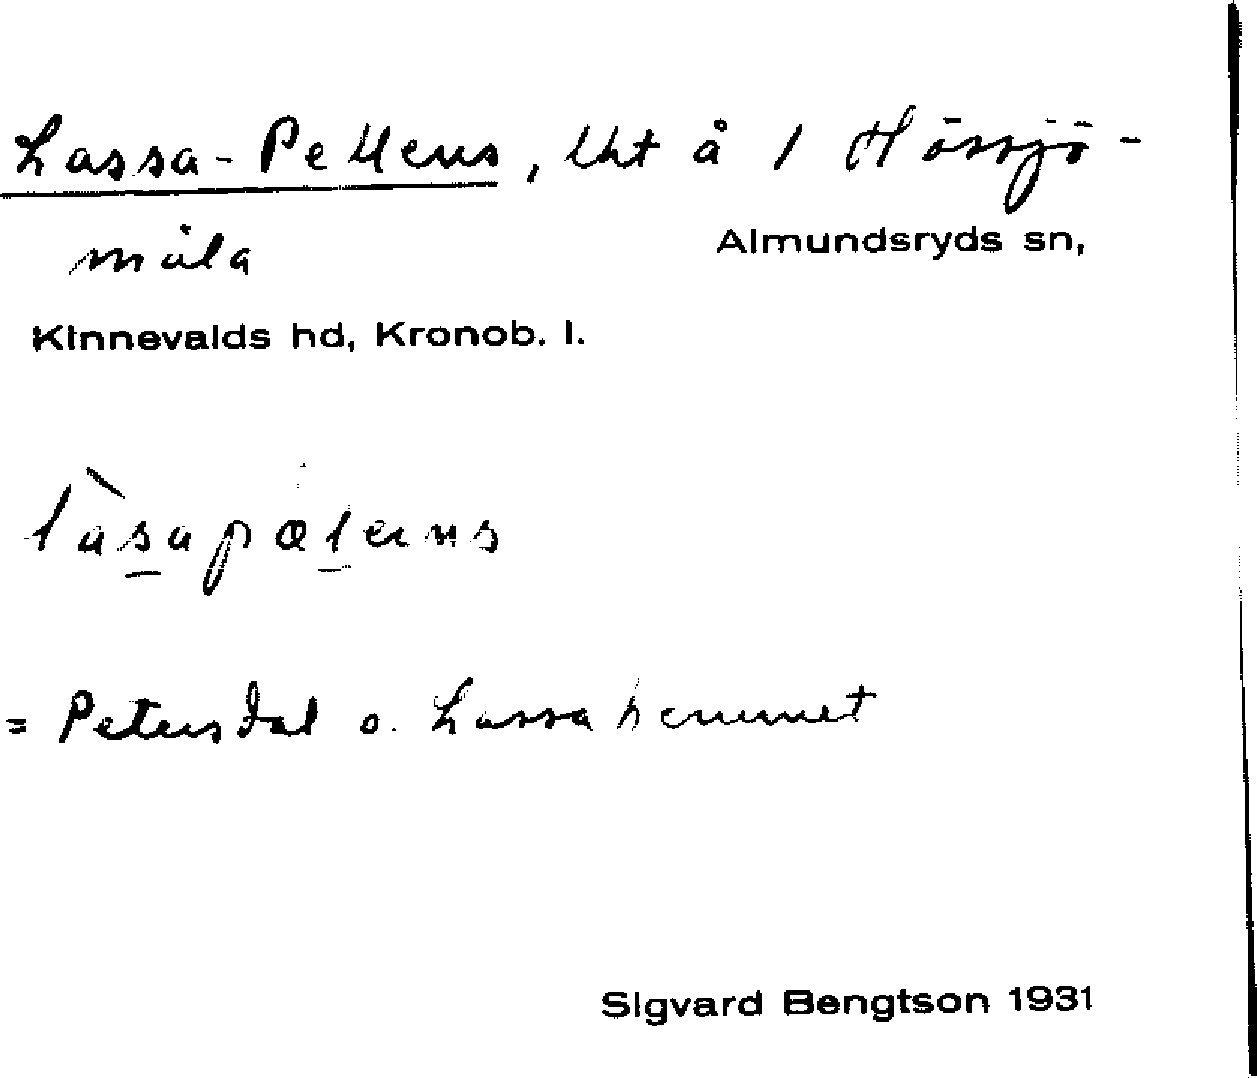 Lassa-Pettens, lht å 1 Hössjö-
måla Almundsryds sn,
Kinnevalds hd, Kronob. l.
làsapætens
= Petersdal o. Lassahemmet
Sigvard Bengtson 1931